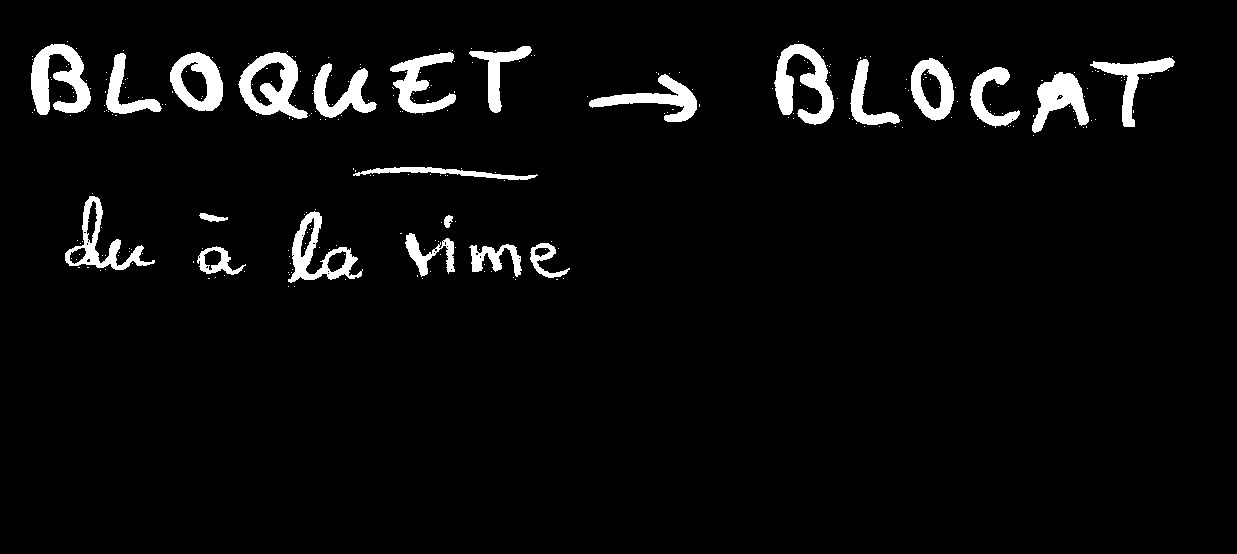 BLOQUET → BLOCAT
du à la rime